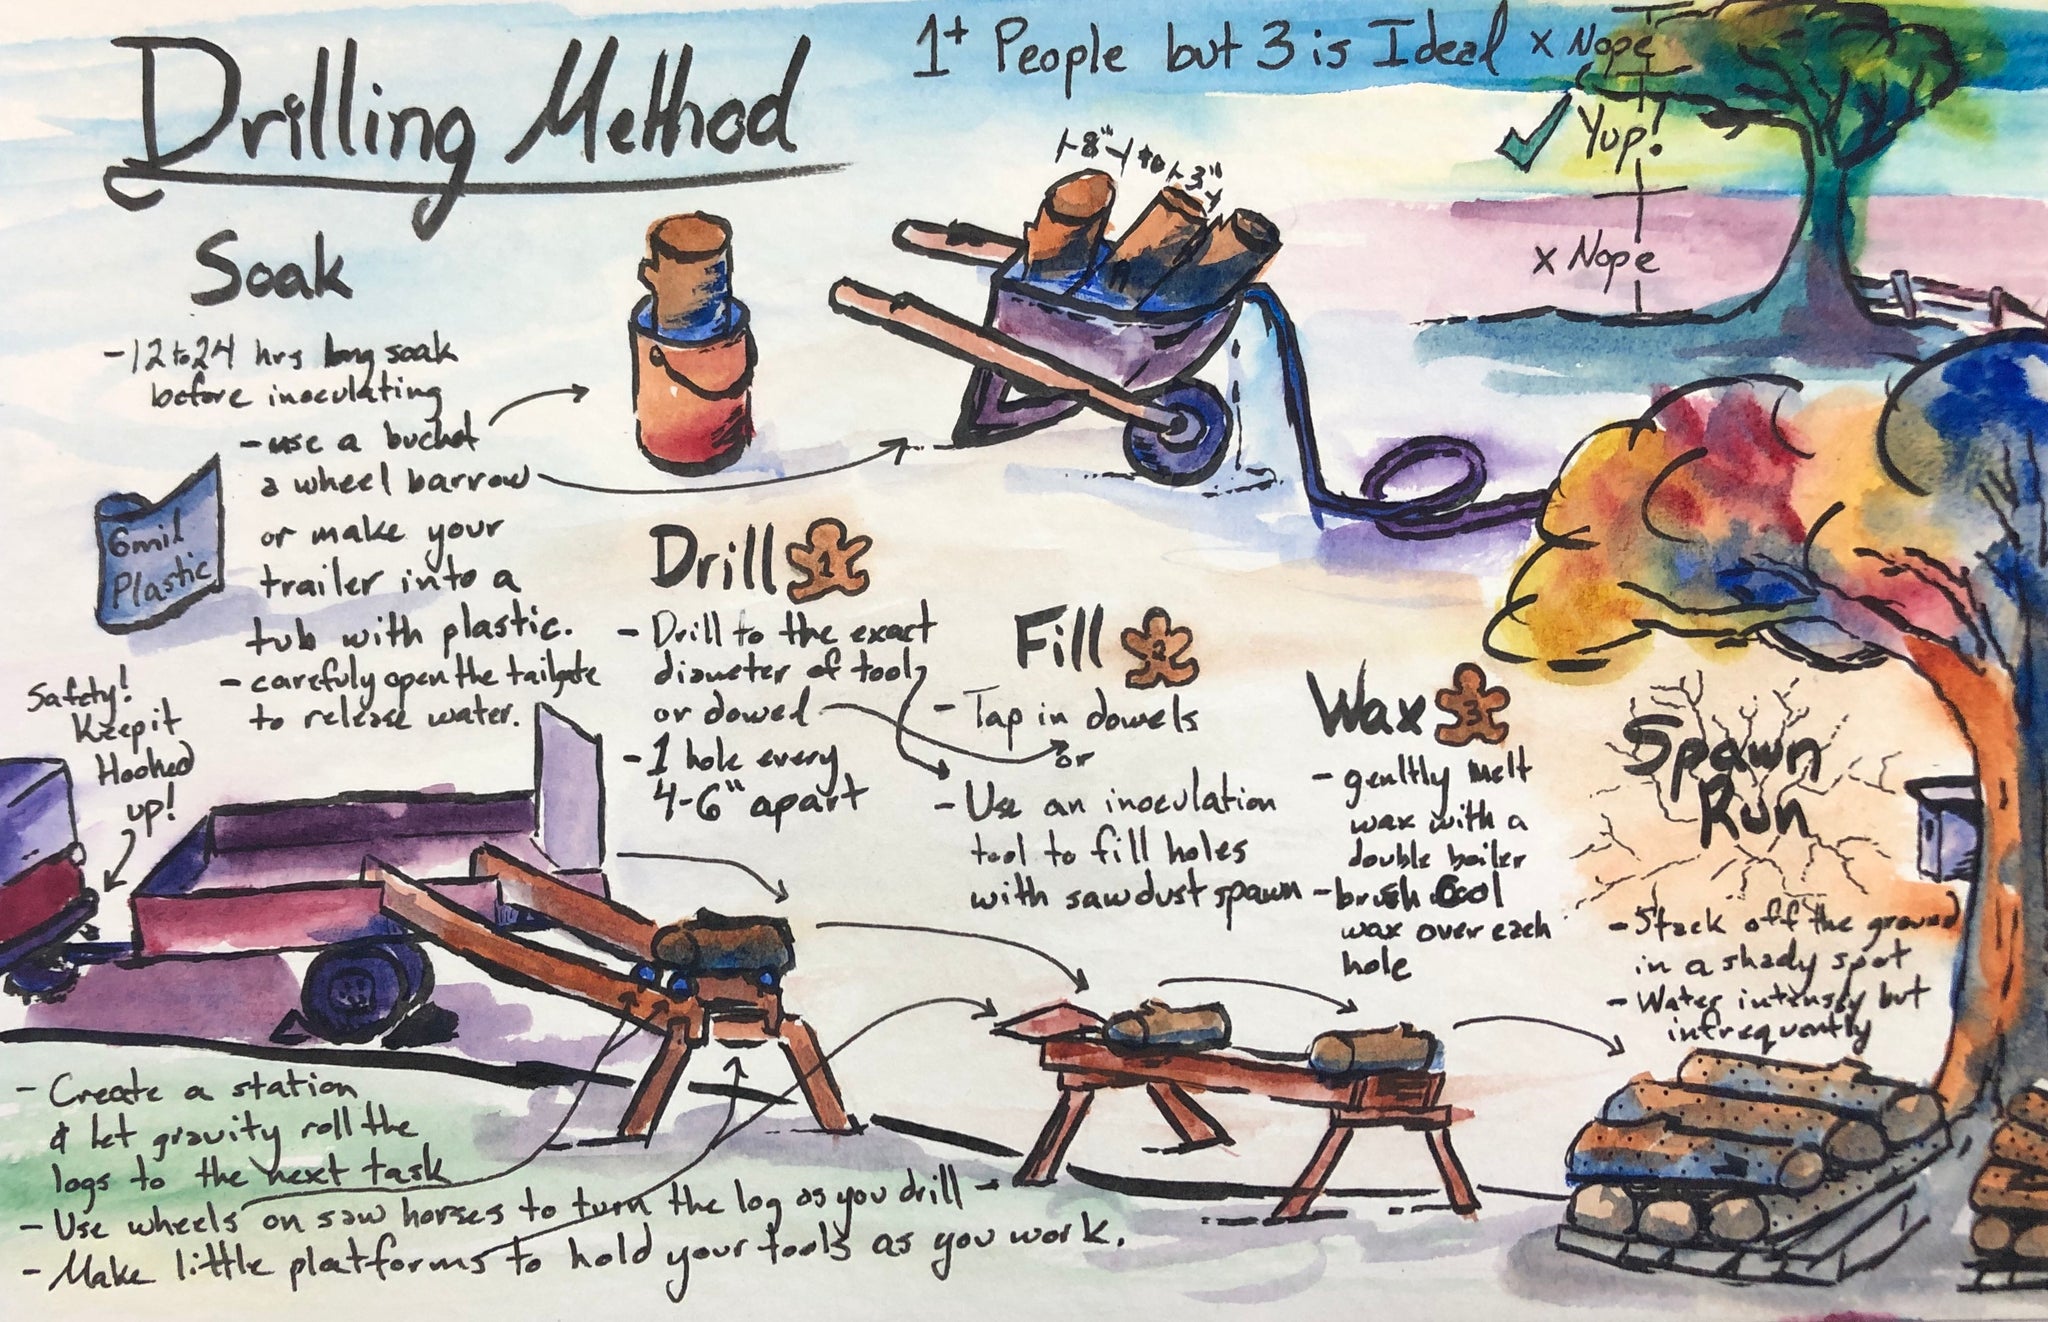 Drilling Method
1+ People but 3 is Ideal
x Nope
Yup!
x Nope
8" to 3"
Soak
- 12 to 24 hrs long soak
before inoculating
- use a bucket
a wheel barrow
or make your
trailer into a
tub with plastic.
- carefuly open the tailgate
to release water.
6mil
Plastic
Safety!
Keep it
Hooked
up!
Drill 1
- Drill to the exact
diameter of tool
or dowed
- 1 hole every
4-6" apart
Fill 2
- Tap in dowels
or
- Use an inoculation
tool to fill holes
with sawdust spawn
Wax 3
- genltly melt
wax with a
double boiler
- brush cool
wax over each
hole
Spawn
Run
- Stack off the ground
in a shady spot
- Water intensly but
infrequently
- Create a station
& let gravity roll the
logs to the next task
- Use wheels on saw horses to turn the log as you drill -
- Make little platforms to hold your tools as you work.